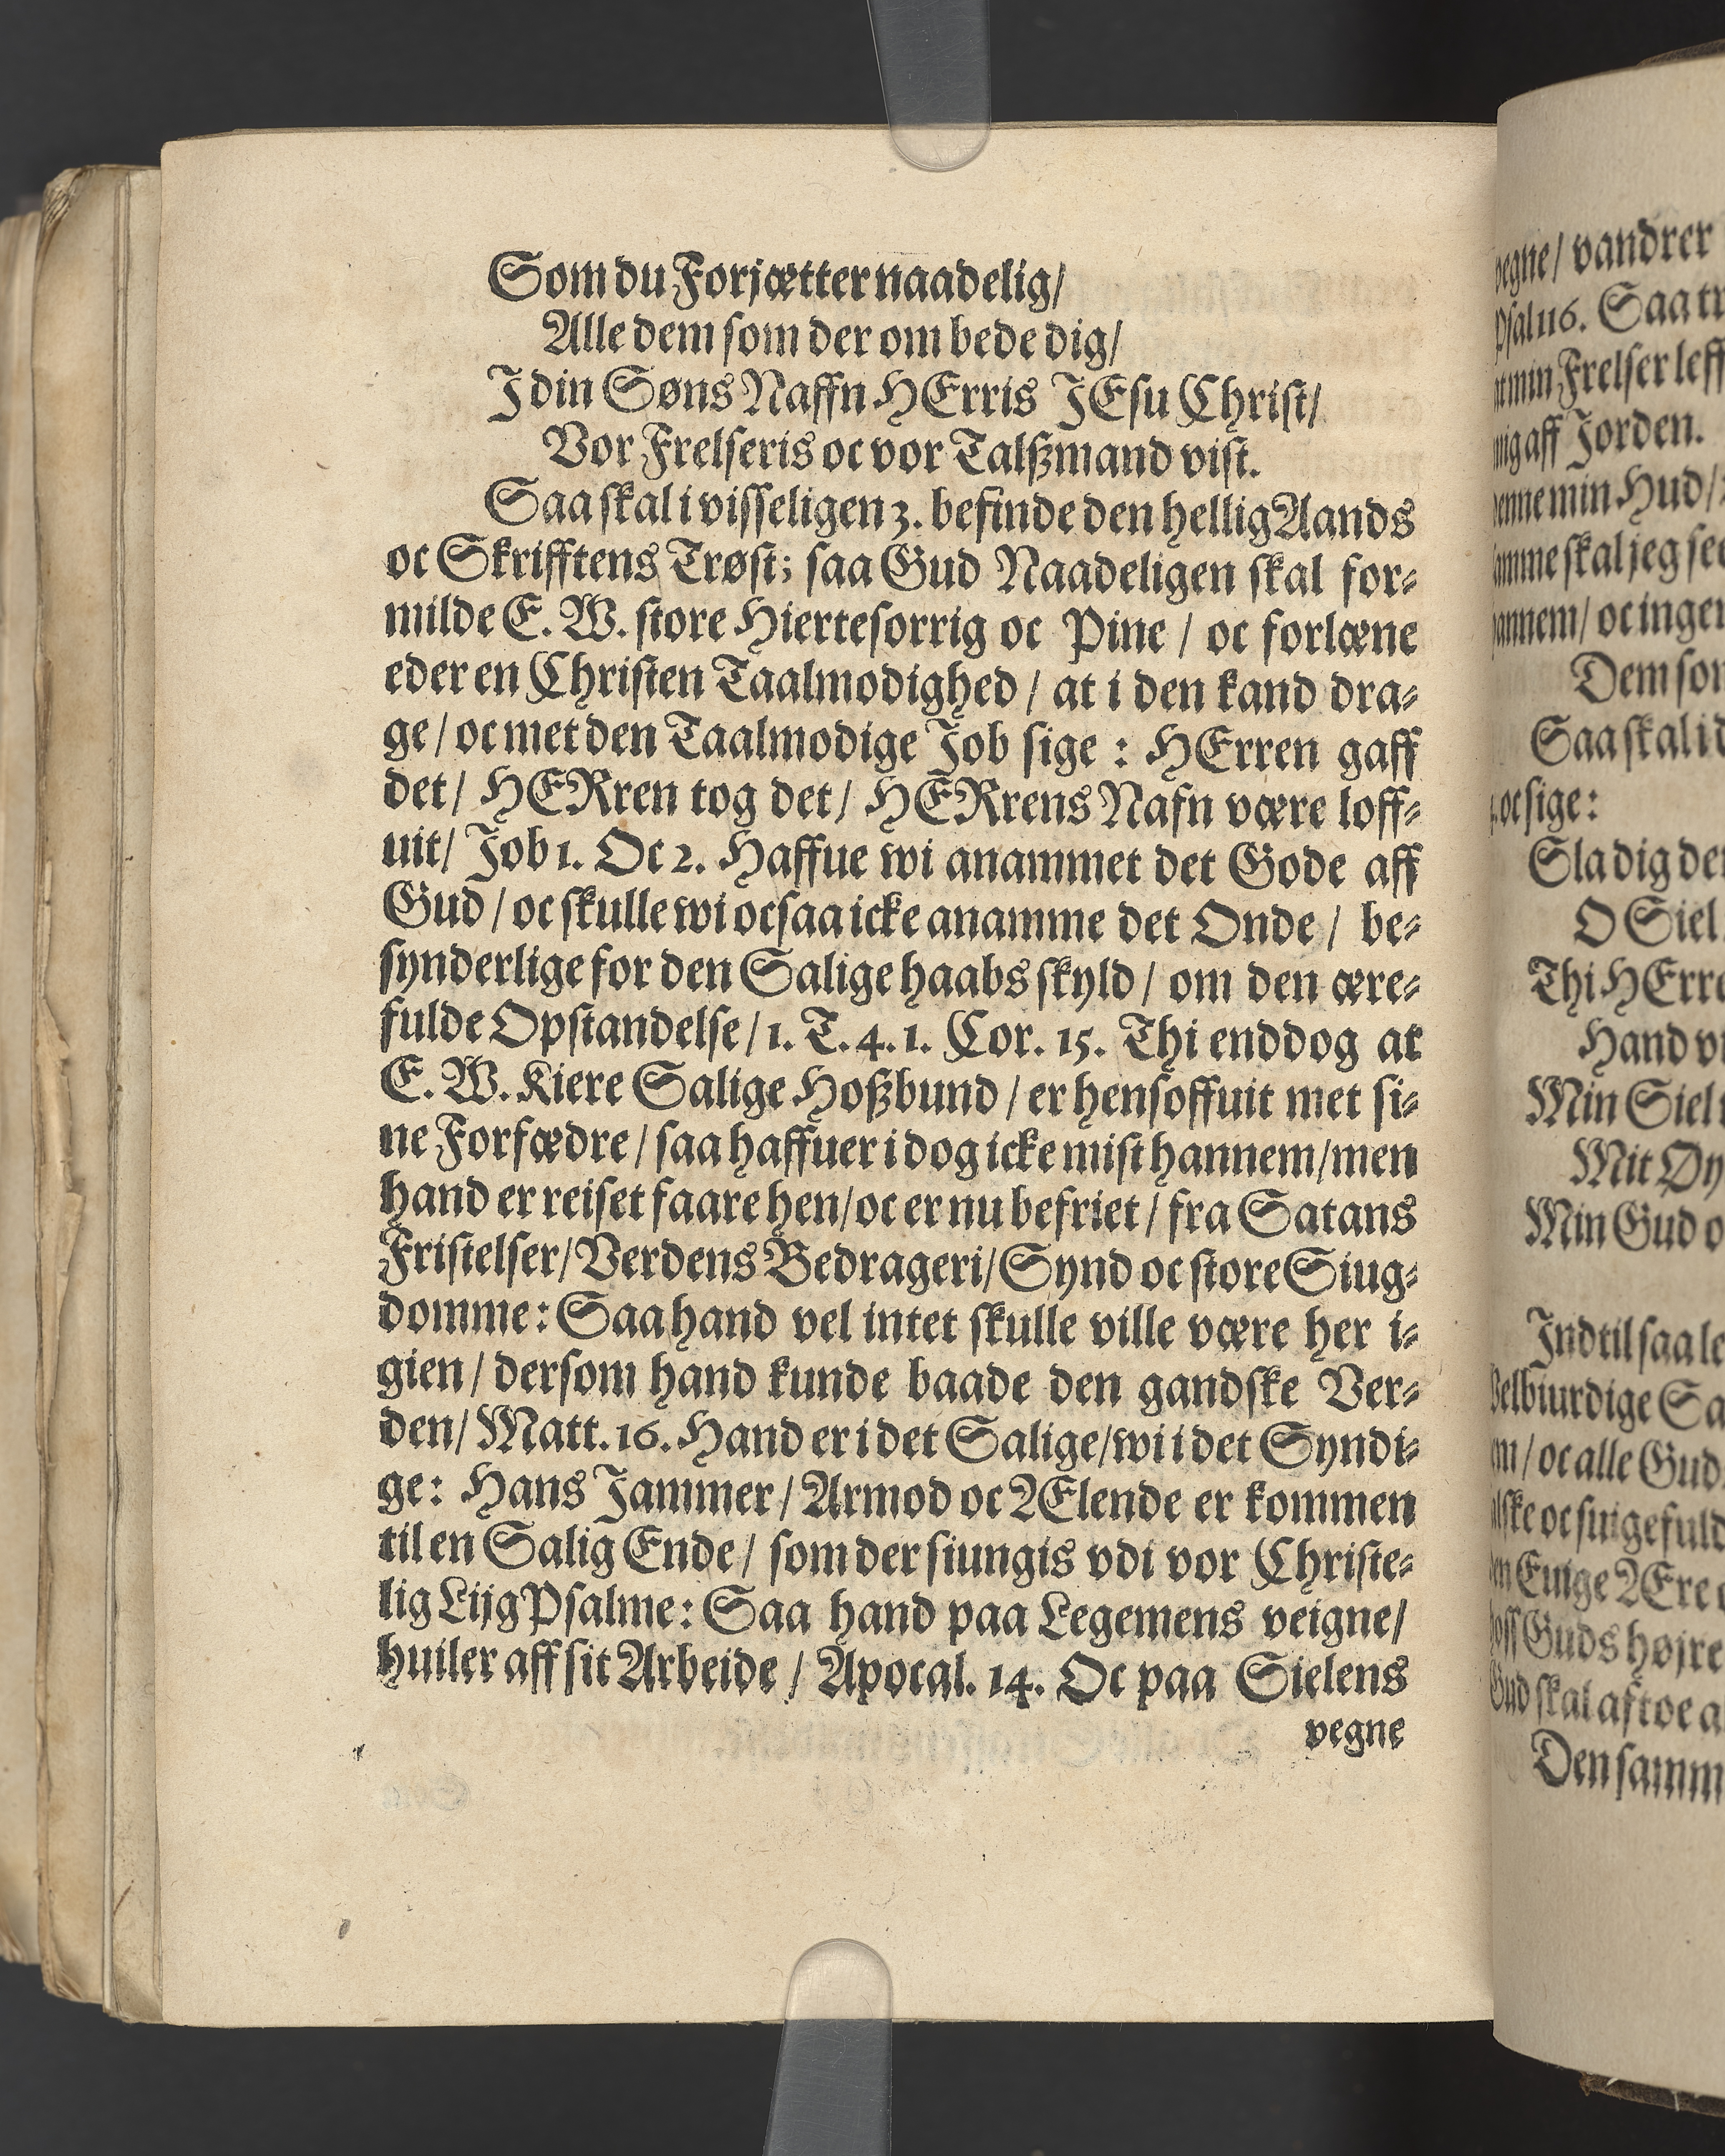 Som du Forjætter naadelig/
Alle dem som der om bede dig/
I din Søns Naffn HErris JEsu Christ/
Vor Frelseris oc vor Talßmand vist.
Saa skal i visseligen 3. befinde den hellig Aands
oc Skrifftens Trøst; saa Gud Naadeligen skal for-
milde E. W. store Hiertesorrig oc Pine / oc forlæne
eder en Christen Taalmodighed / at i den kand dra-
ge / oc met den Taalmodige Job sige : HErren gaff
det / HERren tog det / HERrens Nafn være loff-
uit / Job 1. Oc 2. Haffue wi anammet det Gode aff
Gud / oc skulle wi ocsaa icke anamme det Onde / be-
synderlige for den Salige haabs skyld / om den ære-
fulde Opstandelse / 1. T. 4. 1. Cor. 15. Thi enddog at
E. W. Kiere Salige Hoßbund / er hensoffuit met si-
ne Forfædre / saa haffuer i dog icke mist hannem / men
hand er reiset faare hen / oc er nu befriet / fra Satans
Fristelser / Verdens Bedrageri / Synd oc store Siug-
domme : Saa hand vel intet skulle ville være her i-
gien / dersom hand kunde baade den gandske Ver-
den / Matt. 16. Hand er i det Salige / wi i det Syndi-
ge : Hans Jammer / Armod oc Ælende er kommen
til en Salig Ende / som der siungis vdi vor Christe-
lig Lijg Psalme : Saa hand paa Legemens veigne /
huiler aff sit Arbeide / Apocal. 14. Oc paa Sielens
vegne
vandrer
Saa
Frelser
aff Jorden.
min Hud /
skal jeg
oc
Dem
Saa skal i
oc sige :
Sla dig
O Siel
Thi
Hand
Min Siel
Mit
Min Gud
Indtil saa
oc alle
Guds højre
skal
Den